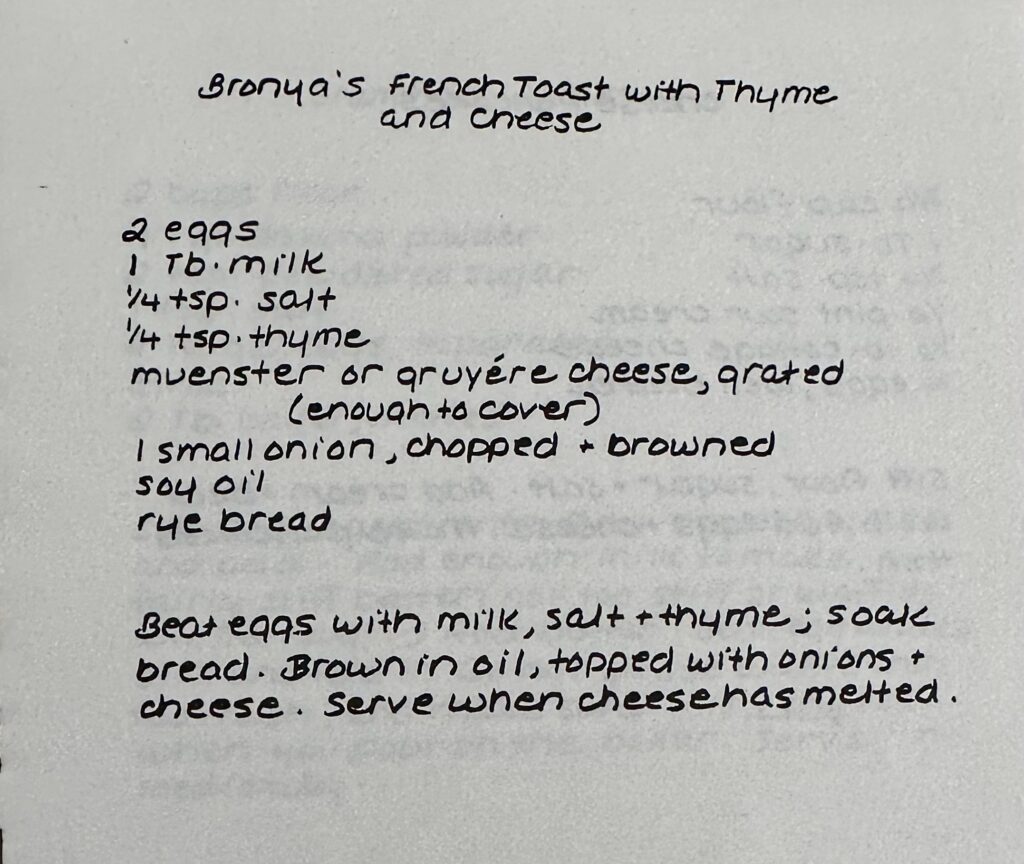 Bronya's French Toast with Thyme
and Cheese
2 eggs
1 Tb. milk
1/4 tsp. salt
1/4 tsp. thyme
muenster or gruyére cheese, grated
(enough to cover)
1 small onion, chopped + browned
soy oil
rye bread
Beat eggs with milk, salt + thyme; soak
bread. Brown in oil, topped with onions +
cheese. Serve when cheese has melted.